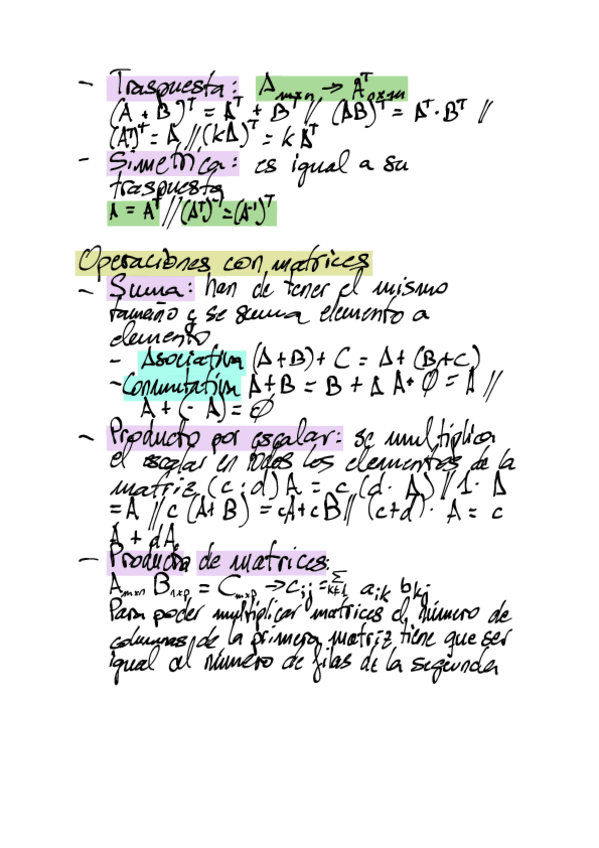 - Traspuesta: A_mxn → A^T_nxm
(A + B)^T = A^T + B^T // (AB)^T = A^T · B^T //
(A^T)^T = A // (kA)^T = k A^T
- Simetrica: es igual a su
traspuesta
A = A^T // (A^T)^-1 = (A^-1)^T
Operaciones con matrices
- Suma: han de tener el mismo
tamaño y se suma elemento a
elemento
- Asociativa (A+B)+ C = A+ (B+C)
- Conmutativa A+B = B + A A+ ∅ = A //
A + (- A) = ∅
- Producto por escalar: se multiplica
el escalar en todos los elementos de la
matriz (c · d) A = c (d · A) // 1 · A
= A // c (A+B) = cA+cB // (c+d) · A = c
A + dA
- Producto de matrices:
A_mxn B_nxp = C_mxp → c_ij = Σ_k=1 a_ik b_kj
Para poder multiplicar matrices el número de
columnas de la primera matriz tiene que ser
igual al número de filas de la segunda